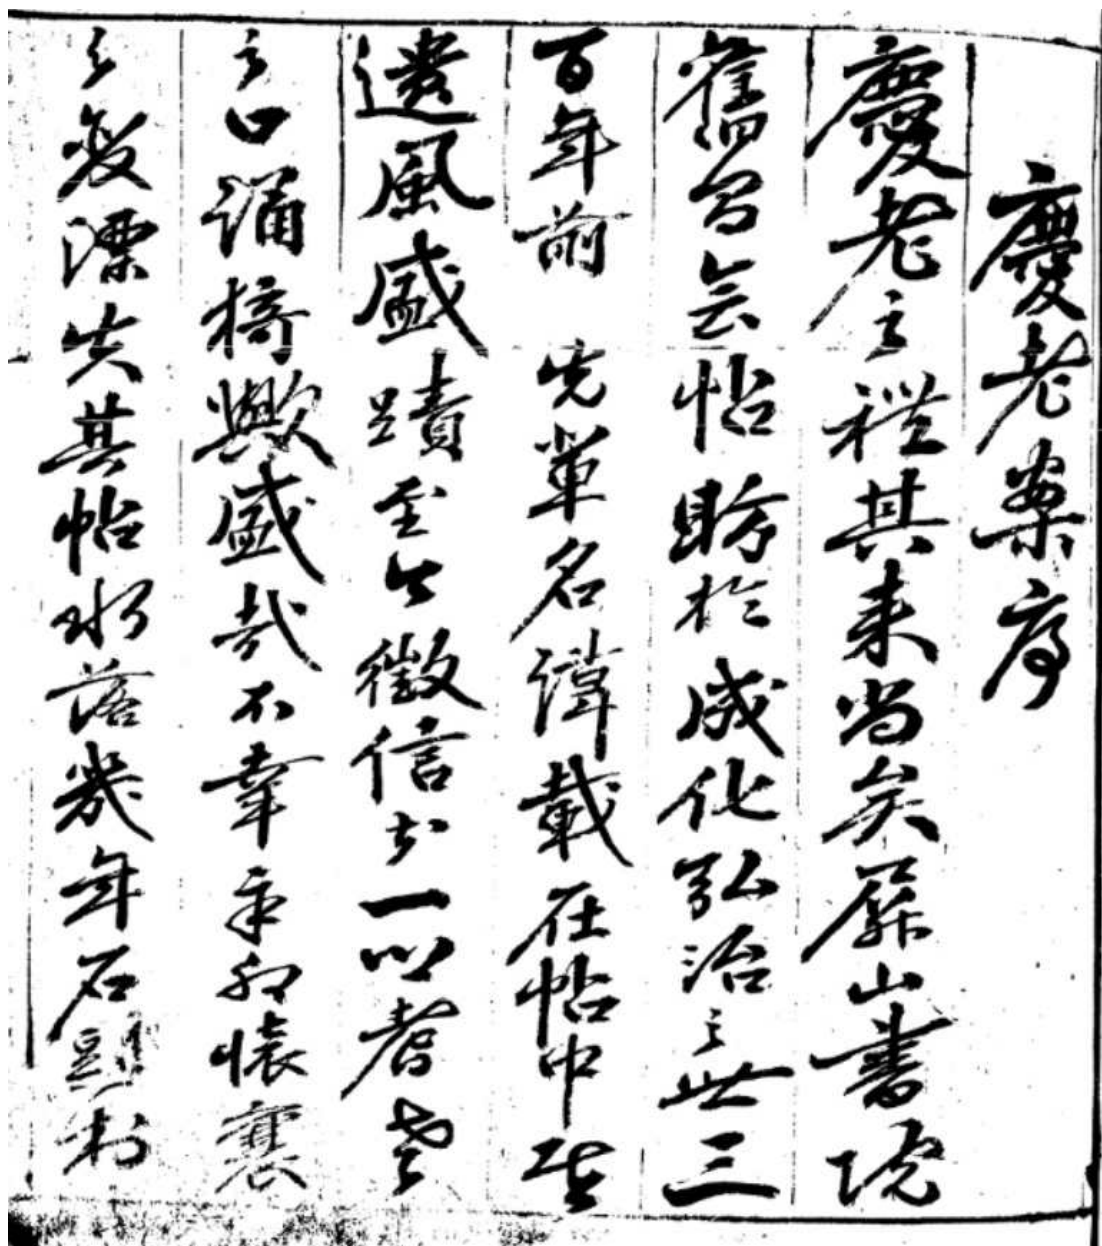 慶老案序
慶老之禮其来尚矣屏山書院
舊有会帖昉於成化弘治之世三
百年前 先輩名諱載在帖中其
遺風盛蹟至今徵信於一以耆老
之口誦猗歟盛哉不幸辛卯懷襄
之變漂失其帖水落幾年石頭村